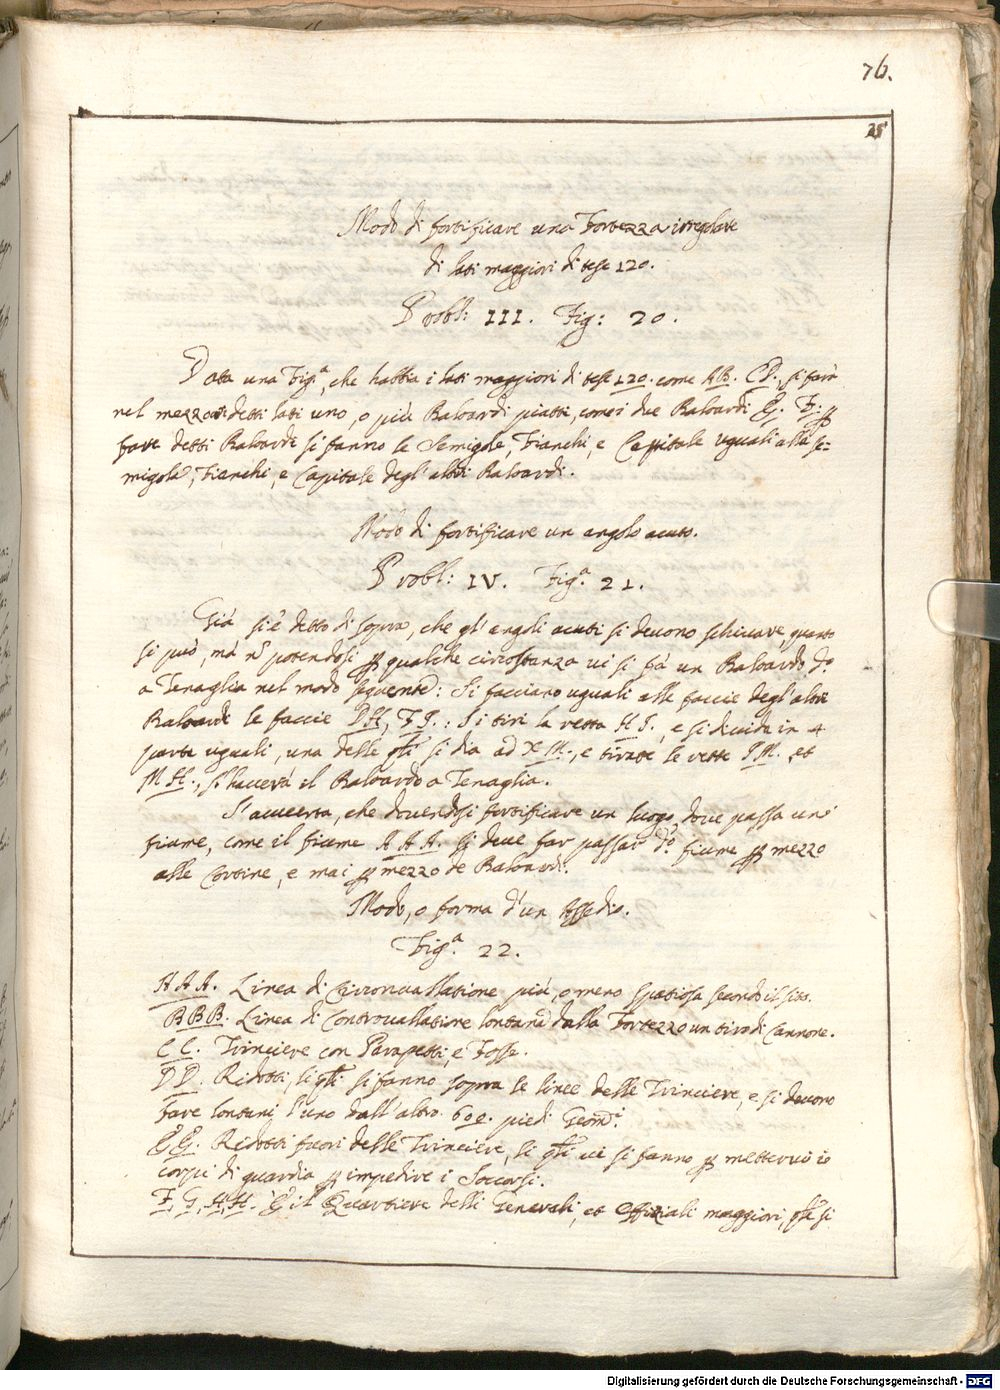 76.
28
Modo di fortificare una Fortezza irregolare
di lati maggiori di tese 120.
Probl: III. Fig: 20.
Data una Fig.ª, che habbia i lati maggiori di tese 120. come AB. CD., si farà
nel mezzo di detti lati uno, o più Baloardi piatti, come i due Baloardi E. F. ꝑ
fare detti Baloardi si fanno le Semigole, Fianchi, e Capitale uguali alla se-
migola, Fianchi, e Capitale degl'altri Baloardi.
Modo di fortificare un angolo acuto.
Probl: IV. Fig.ª 21.
Già si è detto di sopra, che gl'angoli acuti si devono schivare, quanto
si può, mà nō potendosi ꝑ qualche circostanza vi si fà un Baloardo d.º
a Tenaglia nel modo seguente: Si facciano uguali alle faccie degl'altri
Baloardi le faccie DH, FI.: Si tiri la retta HI., e si divida in 4
parti uguali, una delle qˡⁱ si dia ad XM., e tirate le rette IM. et
MH., si haverà il Baloardo a Tenaglia.
S'avverta, che dovendosi fortificare un luogo, dove passa un
fiume, come il fiume AAA. si deve far passar d.º fiume ꝑ mezzo
alle Cortine, e mai ꝑ mezzo de Baloardi.
Modo, o forma d'un Assedio.
Fig.ª 22.
AAA. Linea di Circonvallatione più, o meno spatiosa secondo il sito.
BBB. Linea di Controvallatione lontana dalla Fortezza un tiro di Cannone.
CC. Trinciere con Parapetti, e Fosse.
DD. Ridotti, li qˡⁱ si fanno sopra le linee delle Trinciere, e si devono
fare lontani l'uno dall'altro 600. piedi Geom.ⁱ
EE. Ridotti fuori delle Trinciere, li qˡⁱ vi si fanno ꝑ mettervi i
corpi di guardia ꝑ impedire i Soccorsi.
F, G, H, H. È il Quartiere delli Generali, et Offiziali maggiori, qˡⁱ si
Digitalisierung gefördert durch die Deutsche Forschungsgemeinschaft - DFG